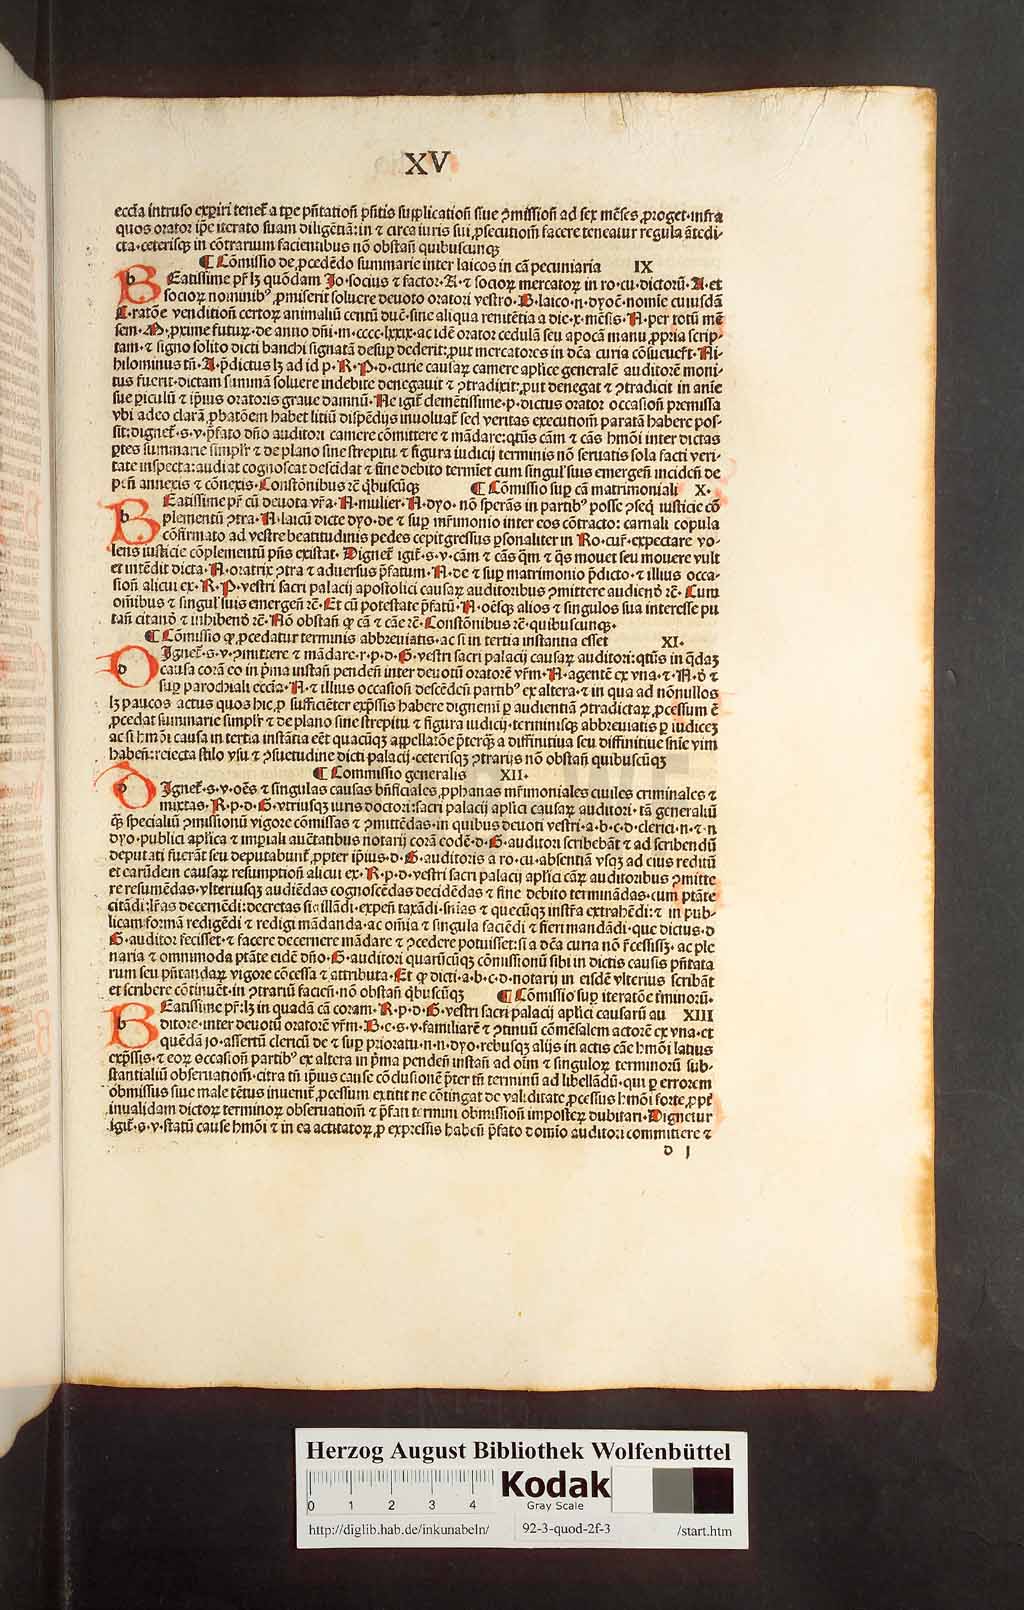 XV
eccľia intruso experiri teneť a tpe pñtation̄ pñtis supplication̄ siue ꝯmission̄ ad sex mēses ꝓroget·infra
quos orator ip̄e iterato suam diligētiā: in ⁊ circa iuris sui ꝓsecutiom̄ facere teneatur regula ātedi-
cta·ceterisqꝫ in cōtrarium facientibus nō obstan̄ quibuscunqꝫ
¶ Cōmissio de ꝓcedēdo summarie inter laicos in cā pecuniaria IX
BEatissime pr̄ lꝫ quōdam Jo·socius ⁊ factor·A·⁊ socioꝝ mercatoꝝ in ro·cu·dictorū·A·et
socioꝝ nominibꝰ ꝓmiserit soluere deuoto oratori vestro·B·laico·n·dyoc̄·nomīe cuiusdā
C·ratōe vendition̄ certoꝝ animaliū centū duc̄·sine aliqua renitētia a die·x·mēsis·N·per totū mē
sem·M·ꝓxime futuꝝ·de anno dn̄i·m·cccc·lxxix·ac idē orator cedulā seu apocā manu ꝓpria scrip-
tam·⁊ signo solito dicti banchi signatā desuꝑ dederit: ꝓut mercatores in dc̄a curia cōsueuerꝶt·Ni-
hilominus tn̄·A·p̄dictus lꝫ ad id p·R·P·d·curie causaꝝ camere apľice generalē auditorē moni-
tus fuerit·dictam summā soluere indebite denegauit ⁊ ꝯtradixit: ꝓut denegat ⁊ ꝯtradicit in aīe
sue ꝑiculū ⁊ ip̄ius oratoris graue damnū·Ne igiť clemētissime·p·dictus orator occasion̄ premissa
vbi adeo clarā ꝓbatōem habet litiū dispēdijs inuoluať sed veritas executiom̄ paratā habere pos-
sit: digneť·s·v·p̄fato dn̄o auditori camere cōmittere ⁊ mādare: qtūs cām ⁊ cās hmōi inter dictas
ꝑtes summarie simplr̄ ⁊ de plano sine strepitu ⁊ figura iudicij terminis nō seruatis sola facti veri-
tate inspecta: audiat cognoscat descidat ⁊ fine debito termīet cum singuľ suis emergen̄ inciden̄ de
pen̄ annexis ⁊ cōnexis·Constōnibus rc̄ qͥbuscūqꝫ ¶ Cōmissio suꝑ cā matrimoniali X·
BEatissime pr̄ cū deuota vr̄a·N·mulier·N·dyo·nō sperās in partibꝰ posse ꝯseq̄ iusticie cō
plementū ꝯtra·N·laicū dicte dyo·de ⁊ suꝑ mr̄imonio inter eos cōtracto: carnali copula
cōfirmato ad vestre beatitudinis pedes cepit gressus ꝑsonaliter in Ro·cur̄·expectare vo-
lens iusticie cōplementū pn̄s existat·Digneť igiť·s·v·cām ⁊ cās qm̄ ⁊ qs mouet seu mouere vult
et intēdit dicta·N·oratrix ꝯtra ⁊ aduersus p̄fatum·N·de ⁊ suꝑ matrimonio p̄dicto·⁊ illius occa-
sion̄ alicui ex·R·P·vestri sacri palacij apostolici causaꝝ auditoribus ꝯmittere audiend̄ rc̄·Cum
om̄ibus ⁊ singuľ suis emergen̄ rc̄·Et cū potestate p̄fatū·N·oēsqꝫ alios ⁊ singulos sua interesse pu
tan̄ citand̄ ⁊ inhibend̄ rc̄·Nō obstan̄ ꝙ cā ⁊ cāe rc̄·Constōnibus rc̄·quibuscunqꝫ·
¶ Cōmissio ꝙ ꝓcedatur terminis abbreuiatis·ac si in tertia instantia esset XI·
DIgneť·s·v·ꝯmittere ⁊ mādare·r·p·d·G·vestri sacri palacij causaꝝ auditori: qtūs in qͣdaꝫ
causa corā eo in p̄ma instan̄ penden̄ inter deuotū oratorē vr̄m·N·agentē ex vna·⁊·N·d̄ ⁊
suꝑ parochiali eccľia·N·⁊ illius occasion̄ descēden̄ partibꝰ ex altera·⁊ in qua ad nōnullos
lꝫ paucos actus quos hic ꝓ sufficiēter exp̄ssis habere dignemī ꝑ audientiā ꝯtradictaꝝ ꝓcessum ē
ꝓcedat summarie simplr̄ ⁊ de plano sine strepitu ⁊ figura iudicij·terminisqꝫ abbreuiatis ꝑ iudiceꝫ
ac si hmōi causa in tertia instātia eēt quacūqꝫ appellatōe p̄terqꝫ a diffinitiua seu diffinitiue snīe vim
haben̄: reiecta stilo vsu ⁊ ꝯsuetudine dicti palacij·ceterisqꝫ ꝯtrarijs nō obstan̄ quibuscūqꝫ
¶ Commissio generalis XII·
DIgneť·s·v·oēs ⁊ singulas causas bn̄ficiales ꝓphanas mr̄imoniales ciuiles criminales ⁊
mixtas·R·p·d·G·vtriusqꝫ iuris doctori: sacri palacij apľici causaꝝ auditori·tā generaliū
qꝫ specialiū ꝯmissionū vigore cōmissas ⁊ ꝯmittēdas·in quibus deuoti vestri·a·b·c·d·clerici·n·⁊·n
dyo·publici apľica ⁊ imꝑiali auc̄tatibus notarij corā eodē·d·G·auditori scribebāt ⁊ ad scribendū
deputati fuerāt seu deputabunť ꝓpter ip̄ius·d·G·auditoris a ro·cu·absentiā vsqꝫ ad eius reditū
et earūdem causaꝝ resumption̄ alicui ex·R·p·d·vestri sacri palacij apľici cāꝝ auditoribus ꝯmitte
re resumēdas·vlteriusqꝫ audiēdas cognoscēdas decidēdas ⁊ fine debito terminādas·cum ptāte
citādi: lr̄as decernēdi: decretas sigillādi·expen̄ taxādi·snīas ⁊ quecūqꝫ instr̄a extrahēdi: ⁊ in pub-
licam formā redigēdi ⁊ redigi mādanda·ac om̄ia ⁊ singula faciēdi ⁊ fieri mandādi·que dictus·d
G·auditor fecisset·⁊ facere decernere mādare ⁊ ꝯcedere potuisset: si a dc̄a curia nō r̄cessissꝫ·ac ple
naria ⁊ omnimoda ptāte eidē dn̄o·G·auditori quarūcūqꝫ cōmissionū sibi in dictis causis pn̄tata
rum seu pn̄tandaꝝ vigore cōcessa ⁊ attributa·Et ꝙ dicti·a·b·c·d·notarij in eisdē vlterius scribāt
et scribere cōtinuēt·in ꝯtrariū facien̄·nō obstan̄ qͥbuscūqꝫ ¶ Cōmissio suꝑ iteratōe t̄minorū·
BEatissime pr̄·lꝫ in quadā cā coram·R·p·d·G·vestri sacri palacij apľici causarū au XIII
ditore·inter deuotū oratorē vr̄m·B·c·s·v·familiarē ⁊ ꝯtinuū cōmēsalem actorē ex vna·et
quēdā jo·assertū clericū de ⁊ suꝑ prioratu·n·n·dyo·rebusqꝫ alijs in actis cāe hmōi latius
exp̄ssis·⁊ eoꝝ occasion̄ partibꝰ ex altera in p̄ma penden̄ instan̄ ad oīm ⁊ singuloꝝ terminorū sub-
stantialiū obseruatiom̄·citra tn̄ ip̄ius cause cōclusionē p̄ter tn̄ terminū ad libellādū·qui ꝑ errorem
obmissus siue male tētus inueniť ꝓcessum extitit ne cōtingat de validitate ꝓcessus hmōi forte ꝓpť
inualidam dictoꝝ terminoꝝ obseruatiom̄ ⁊ p̄fati termini obmission̄ imposteꝝ dubitari·Dignetur
igiť·s·v·statū cause hmōi ⁊ in ea actitatoꝝ ꝓ expressis haben̄ p̄fato domīo auditori committere ⁊
d j
Herzog August Bibliothek Wolfenbüttel
0 1 2 3 4
Kodak
Gray Scale
http://diglib.hab.de/inkunabeln/ 92-3-quod-2f-3 /start.htm